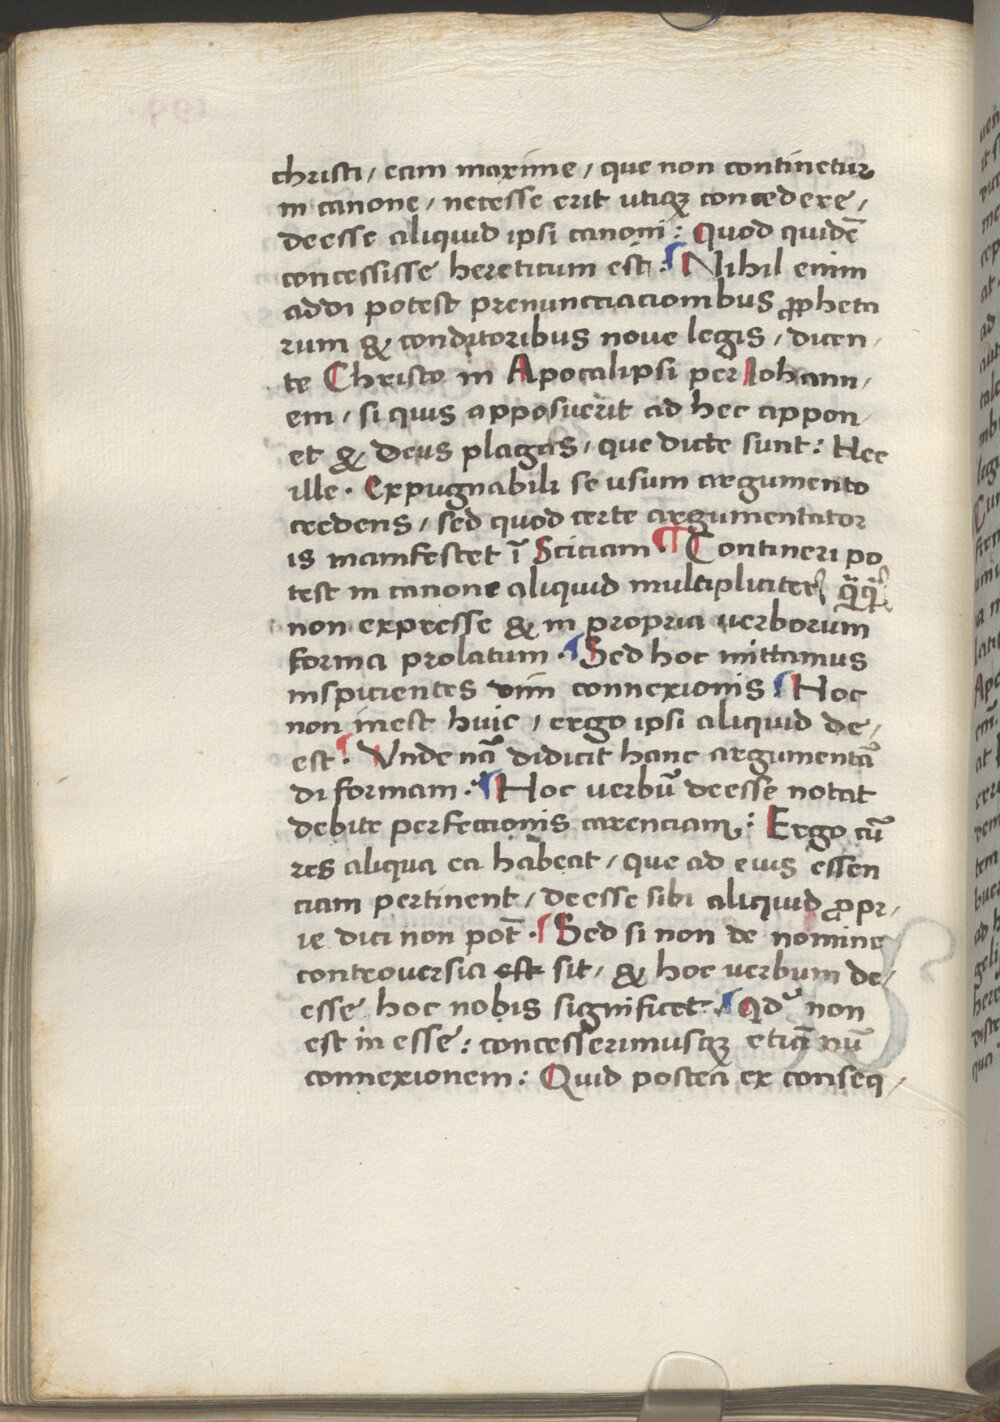 christi / eam maxime / que non continetur
in canone / necesse erit utiqꝫ concedere /
deesse aliquid ipsi canoni : Quod quidē
concessisse hereticum est : ¶ Nihil enim
addi potest prenunctiacionibus ꝓpheta
rum & conditoribus noue legis / dicen /
te Christo in Apocalipsi per Iohann /
em / si quis apposuerit ad hec appon /
et & Deus plagas / que dicte sunt : Hec
ille . Expugnabili se usum argumento
credens / sed quod certe argumentator
is manifestet ī Sciciam ¶ Contineri po
test in canone aliquid multipliciter / qꝗ̄
non expresse & in propria uerborum
forma prolatum . ¶ Sed hoc mittamus
inspicientes uim connexionis ¶ Hoc
non inest huic / ergo ipsi aliquid de /
est ¶ Vnde nā didicit hanc argumentā
di formam . ¶ Hoc uerbū deesse notat
debite perfectionis carenciam : Ergo cū
res aliqua ea habeat / que ad eius essen
ciam pertinent / deesse sibi aliquid ꝓpr /
ie dici non pot̄ . ¶ Sed si non de nomine
controuersia est sit / & hoc uerbum de /
esse hoc nobis significet . ¶ Qd non
est in esse : concesserimusqꝫ etiā nū
connexionem : Quid postea ex conseq /